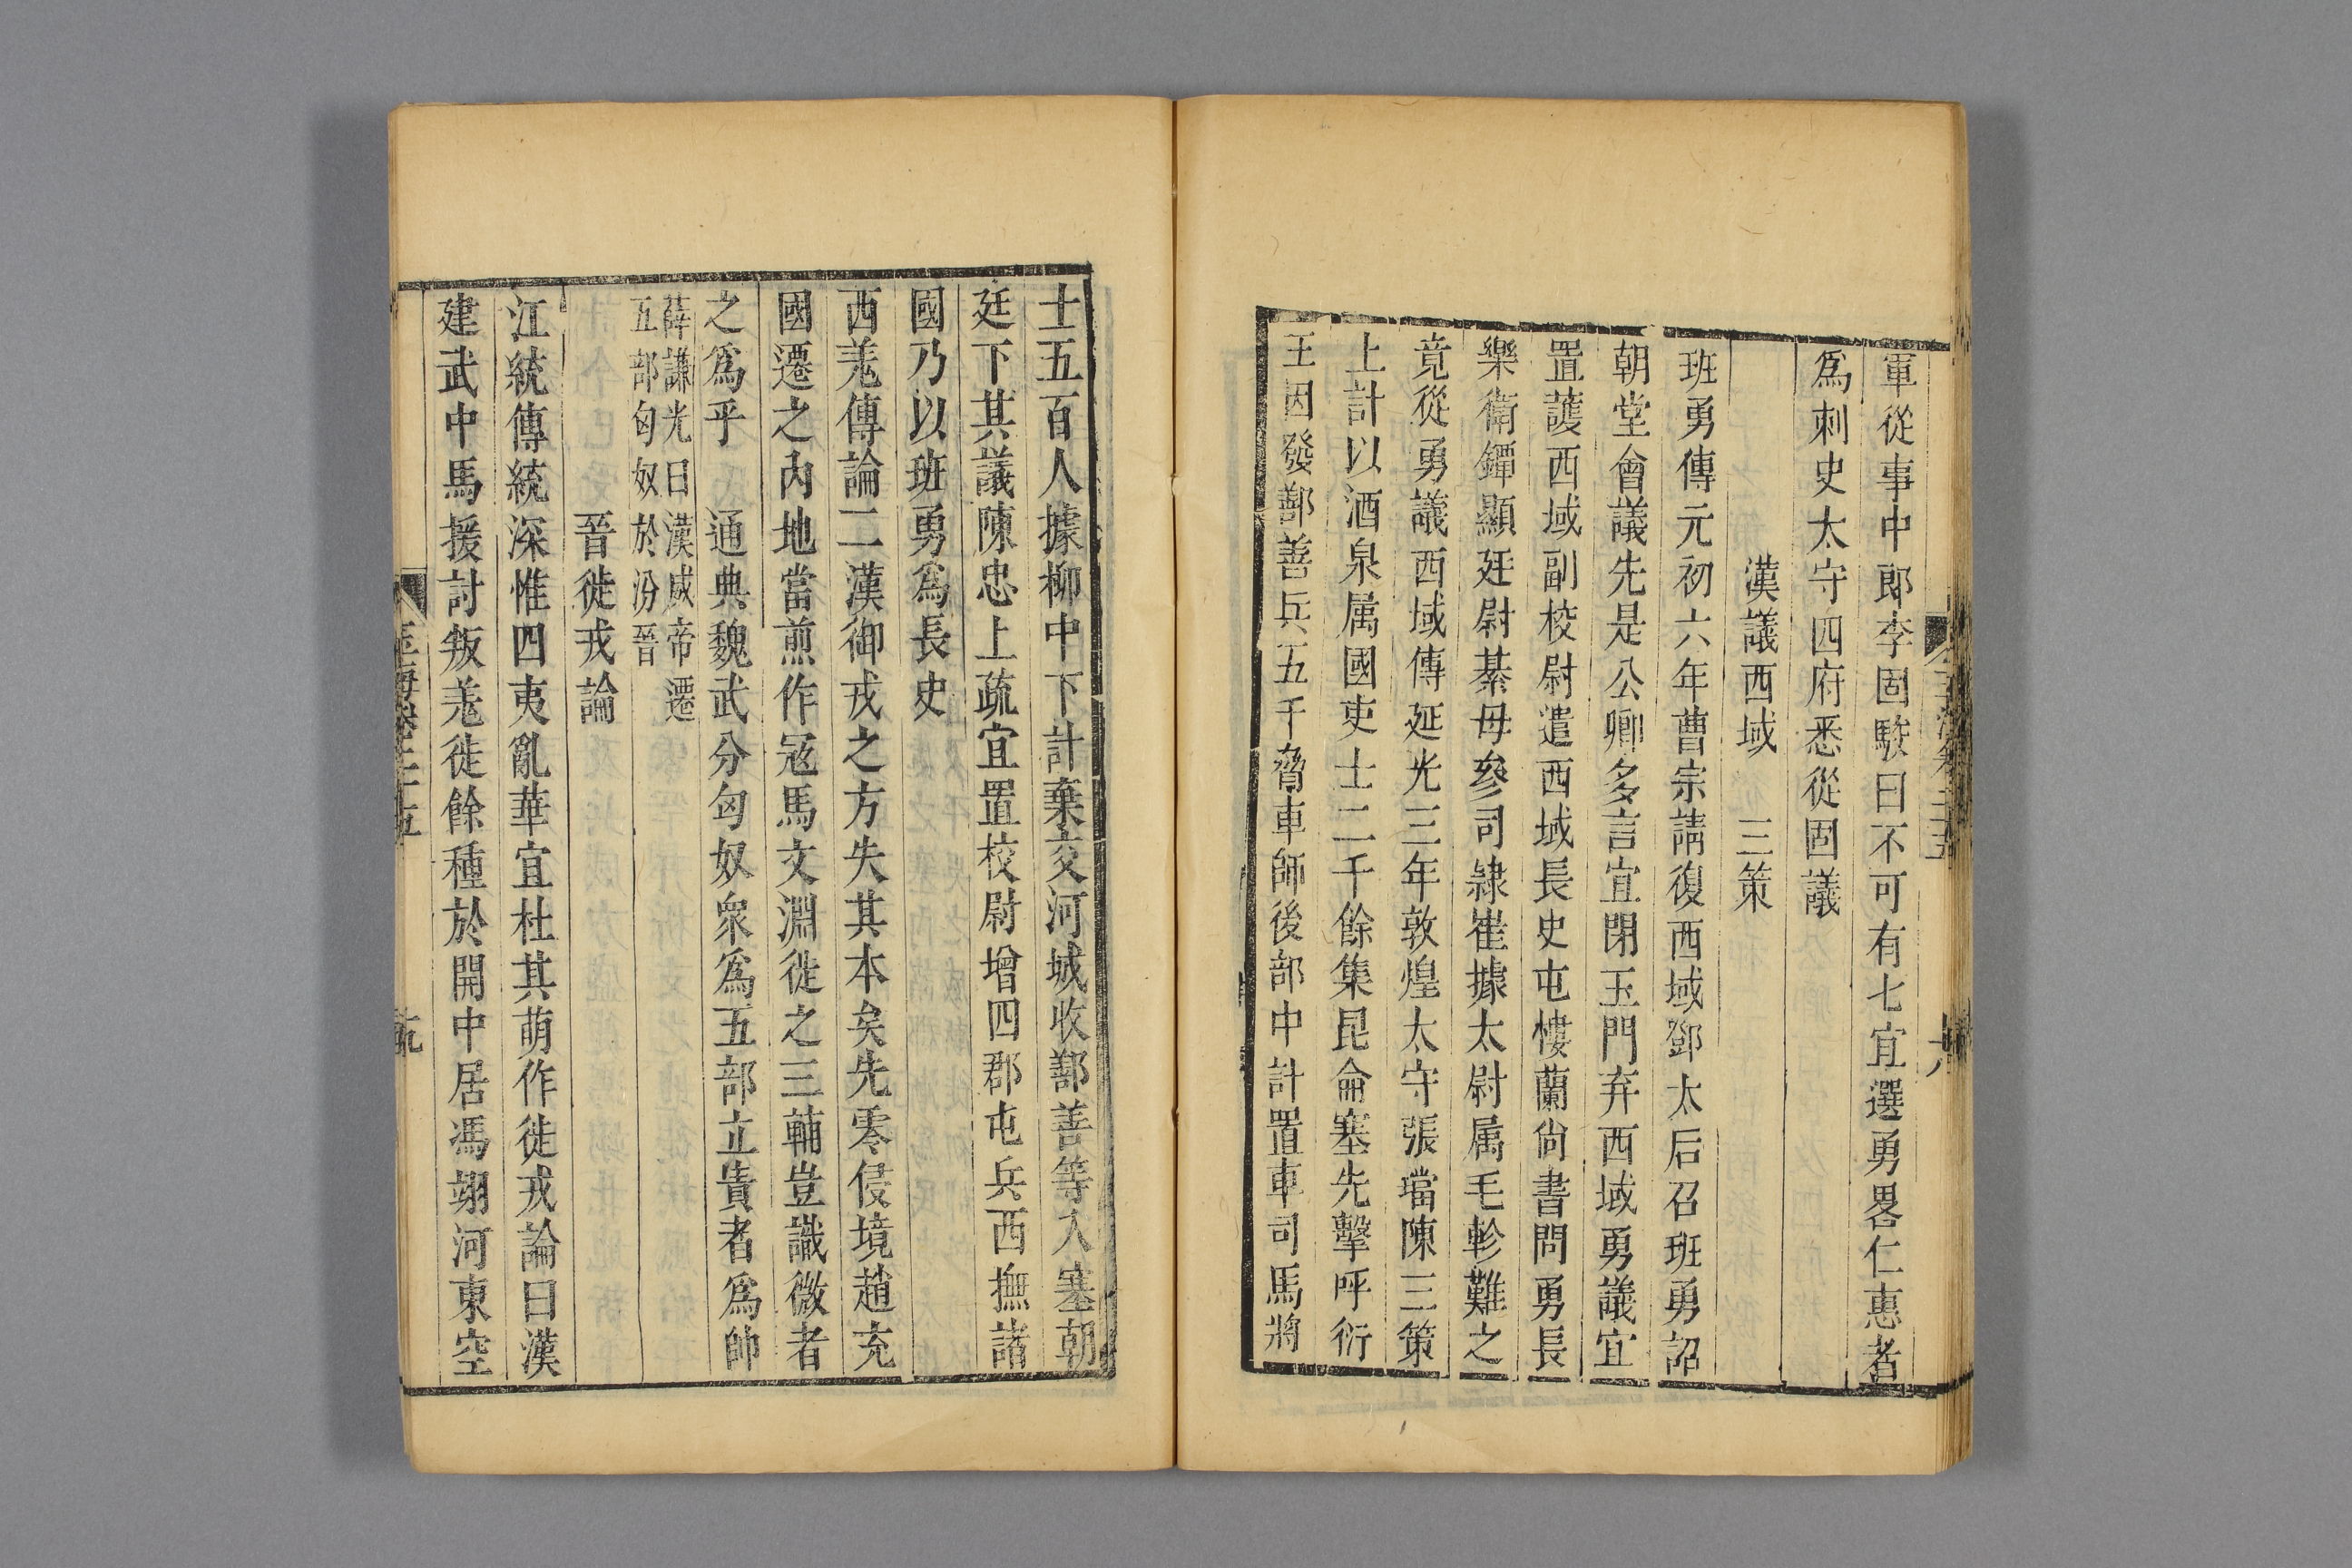 軍從事中郎李固駮曰不可有七宜選勇畧仁惠者
爲刺史太守四府悉從固議
漢議西域　三策
班勇傳元初六年曹宗請復西域鄧太后召班勇詔
朝堂會議先是公卿多言宜閉玉門弃西域勇議宜
置護西域副校尉遣西域長史屯樓蘭尙書問勇長
樂衛鐔顯廷尉綦母參司隸崔據太尉属毛軫難之
竟從勇議西域傳延光三年敦煌太守張璫陳三策
上計以酒泉属國吏士二千餘集昆侖塞先擊呼衍
王因發鄯善兵五千脅車師後部中計置車司馬將
士五百人據柳中下計棄交河城收鄯善等入塞朝
廷下其議陳忠上疏宜置校尉增四郡屯兵西撫諸
國乃以班勇爲長史
西羌傳論二漢御戎之方失其本矣先零侵境趙充
國遷之內地當煎作冦馬文淵徙之三輔豈識微者
之爲乎　通典魏武分匈奴衆爲五部立貴者爲帥
薛謙光曰漢咸帝遷
五部匈奴於汾晉
晉徙戎論
江統傳統深惟四夷亂華宜杜其萌作徙戎論曰漢
建武中馬援討叛羌徙餘種於開中居馮翊河東空
玉海卷六十五